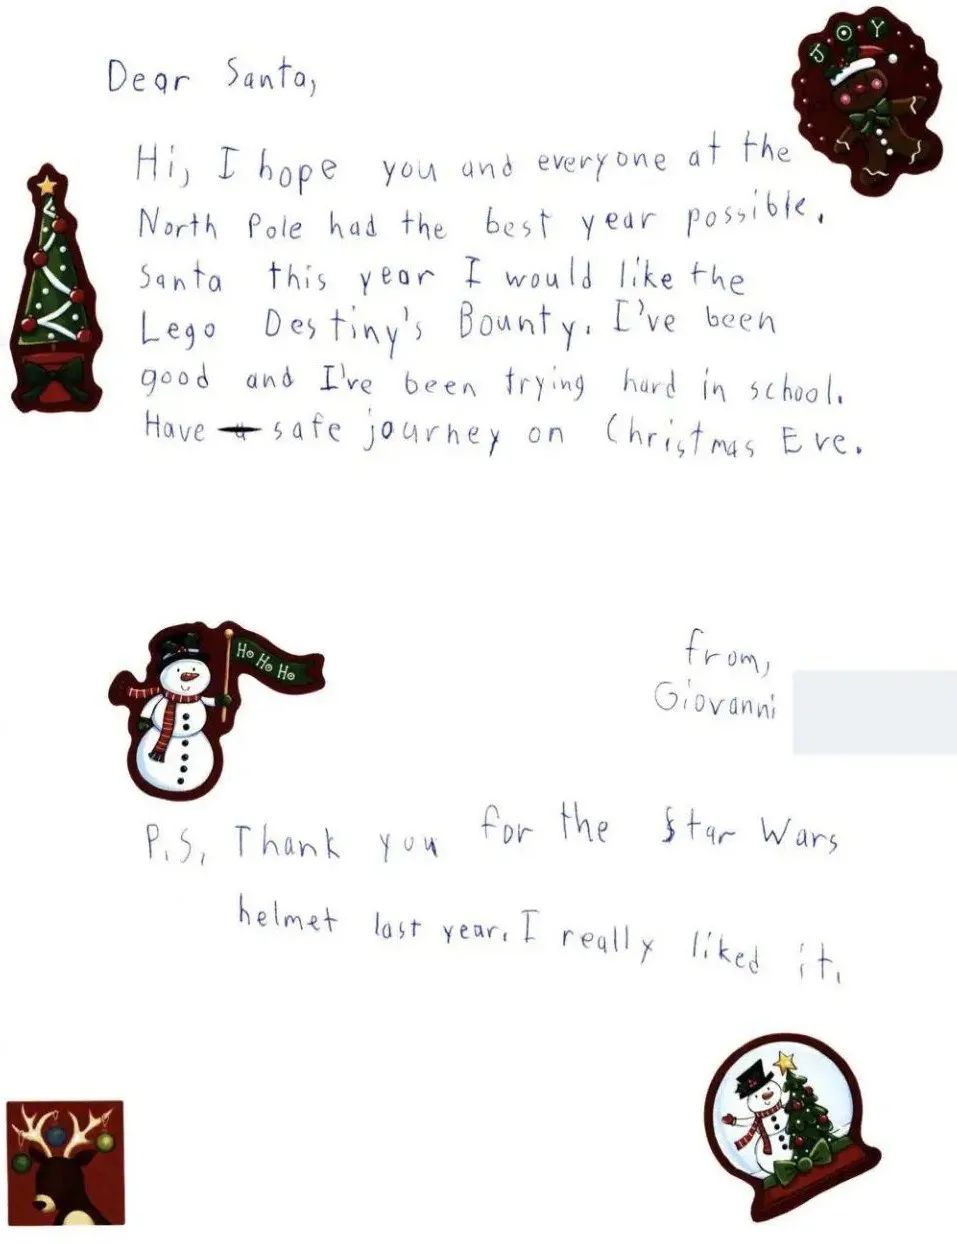 JOY
Dear Santa,
Hi, I hope you and everyone at the
North Pole had the best year possible.
Santa this year I would like the
Lego Destiny's Bounty. I've been
good and I've been trying hard in school.
Have safe journey on Christmas Eve.
Ho Ho Ho
from,
Giovanni
P.S, Thank you for the Star Wars
helmet last year. I really liked it.